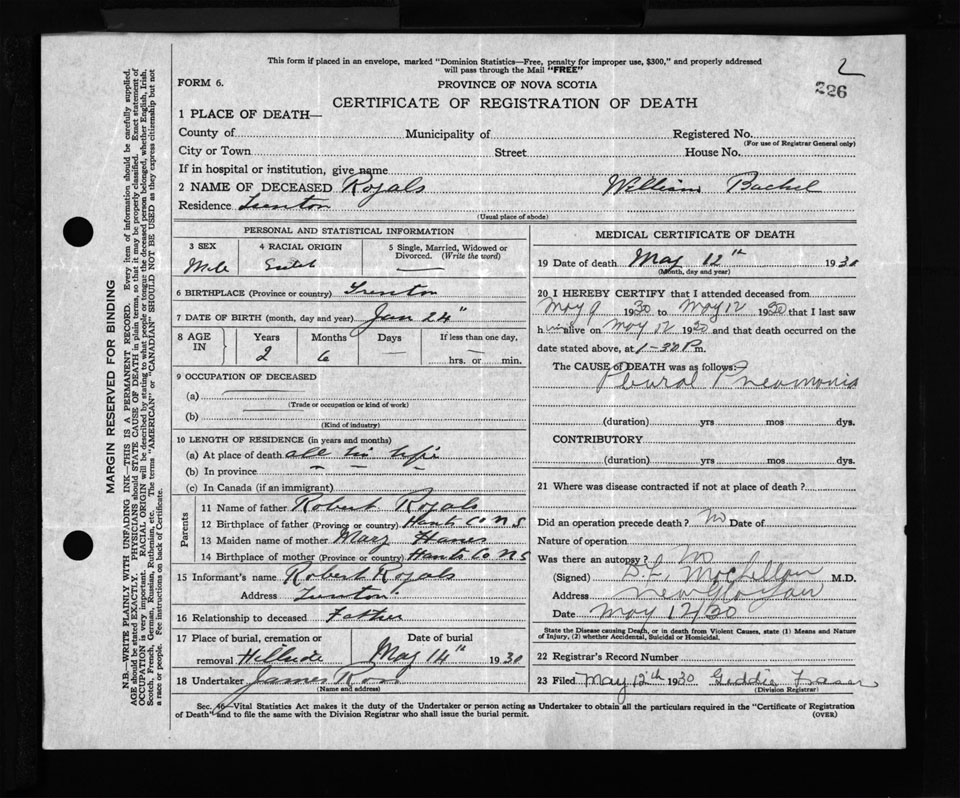 This form if placed in an envelope, marked "Dominion Statistics—Free, penalty for improper use, $300," and properly addressed
will pass through the Mail "FREE"
2
226
FORM 6.
PROVINCE OF NOVA SCOTIA
CERTIFICATE OF REGISTRATION OF DEATH
1 PLACE OF DEATH—
County of Municipality of Registered No.
(For use of Registrar General only)
City or Town Street House No.
If in hospital or institution, give name
2 NAME OF DECEASED Royals William
Residence Trenton
(Usual place of abode)
PERSONAL AND STATISTICAL INFORMATION
3 SEX 4 RACIAL ORIGIN 5 Single, Married, Widowed or
Divorced. (Write the word)
Male
6 BIRTHPLACE (Province or country) Trenton
7 DATE OF BIRTH (month, day and year) Jan 24"
8 AGE IN Years Months Days If less than one day,
2 6 — —
hrs. or min.
9 OCCUPATION OF DECEASED
(a)
(Trade or occupation or kind of work)
(b)
(Kind of industry)
10 LENGTH OF RESIDENCE (in years and months)
(a) At place of death all his life
(b) In province
(c) In Canada (if an immigrant)
Parents
11 Name of father Robert Royals
12 Birthplace of father (Province or country) Hants Co N S
13 Maiden name of mother Mary
14 Birthplace of mother (Province or country) Hants Co N S
15 Informant's name Robert Royals
Address Trenton
16 Relationship to deceased Father
17 Place of burial, cremation or Date of burial
removal May 14th 1930
18 Undertaker James Ross
(Name and address)
MEDICAL CERTIFICATE OF DEATH
19 Date of death May 12th 1930
(Month, day and year)
20 I HEREBY CERTIFY that I attended deceased from
May 9 1930 to May 12 1930 that I last saw
him alive on May 12 1930 and that death occurred on
the date stated above, at 1-30 P m.
The CAUSE of DEATH was as follows:
Pleural Pneumonia
(duration) yrs mos dys.
CONTRIBUTORY
(duration) yrs mos dys.
21 Where was disease contracted if not at place of death?
Did an operation precede death? No Date of
Nature of operation
Was there an autopsy? No
(Signed) M.D.
Address New Glasgow
Date May 12/30
State the Disease causing Death, or in death from Violent Causes, state (1) Means and Nature
of Injury, (2) whether Accidental, Suicidal or Homicidal.
22 Registrar's Record Number
23 Filed May 12th 1930 Geddie Fraser
(Division Registrar)
Sec. 40—Vital Statistics Act makes it the duty of the Undertaker or person acting as Undertaker to obtain all the particulars required in the "Certificate of Registration
of Death" and to file the same with the Division Registrar who shall issue the burial permit. (OVER)
MARGIN RESERVED FOR BINDING
N.B.—WRITE PLAINLY WITH UNFADING INK—THIS IS A PERMANENT RECORD. Every item of information should be carefully supplied.
AGE should be stated EXACTLY. PHYSICIANS should STATE CAUSE OF DEATH in plain terms, so that it may be properly classified. Exact statement of
OCCUPATION is very important. RACIAL ORIGIN will be described by stating to what people or tongue the deceased person belonged, whether English, Irish,
Scotch, French, German, Russian, Ruthenian, etc. The terms "AMERICAN" or "CANADIAN" SHOULD NOT BE USED as they express citizenship but not
a race or people. Fee instructions on back of Certificate.